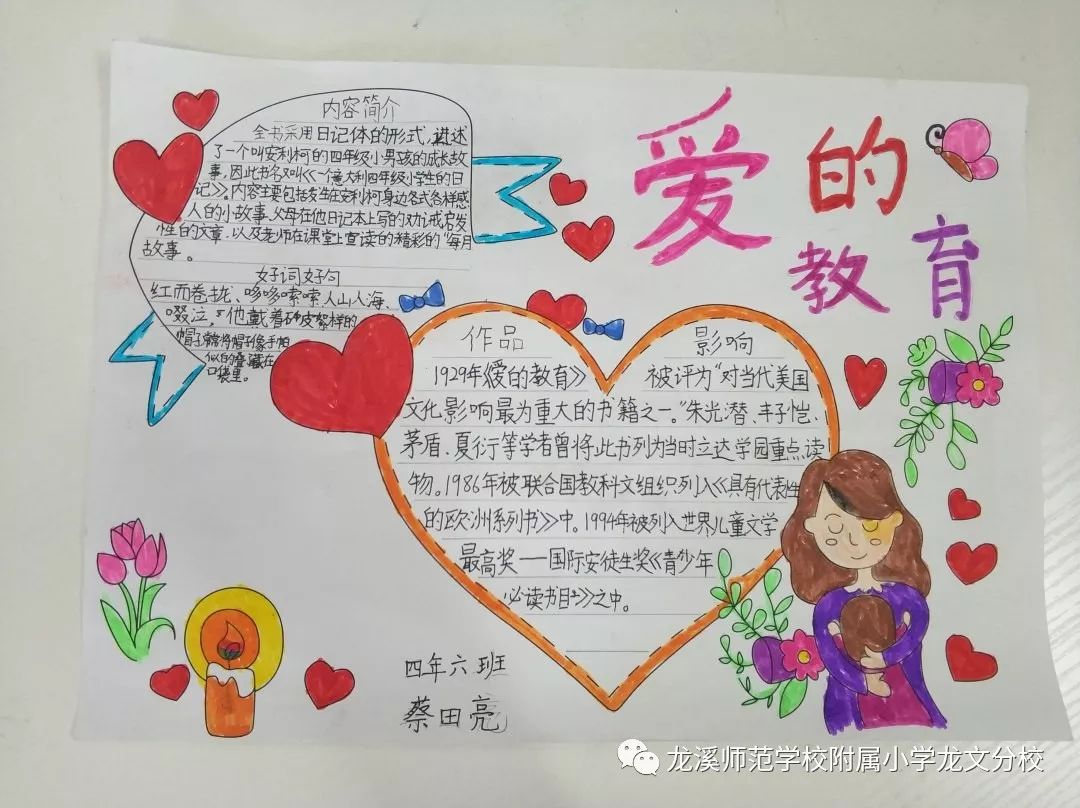 爱的
教育
内容简介
全书采用日记体的形式,讲述
了一个叫安利柯的四年级小男孩的成长故
事,因此书名又叫《一个意大利四年级小学生的日
记》。内容主要包括发生在安利柯身边各式各样感
人的小故事、父母在他日记本上写的劝诫启发
性的文章,以及老师在课堂上宣读的精彩的“每月
故事。
好词好句
红而卷拢、哆哆嗦嗦、人山人海、
啜泣,“他戴着
帽子,常将帽子像手帕
似的叠藏在
口袋里。
作品 影响
1929年《爱的教育》 被评为“对当代美国
文化影响最为重大的书籍之一。”朱光潜、丰子恺、
茅盾、夏衍等学者曾将此书列为当时立达学园重点读
物。1986年被联合国教科文组织列入《具有代表性
的欧洲系列书》中。1994年被列入世界儿童文学
最高奖——国际安徒生奖《青少年
必读书目》之中。
四年六班
蔡田亮
龙溪师范学校附属小学龙文分校